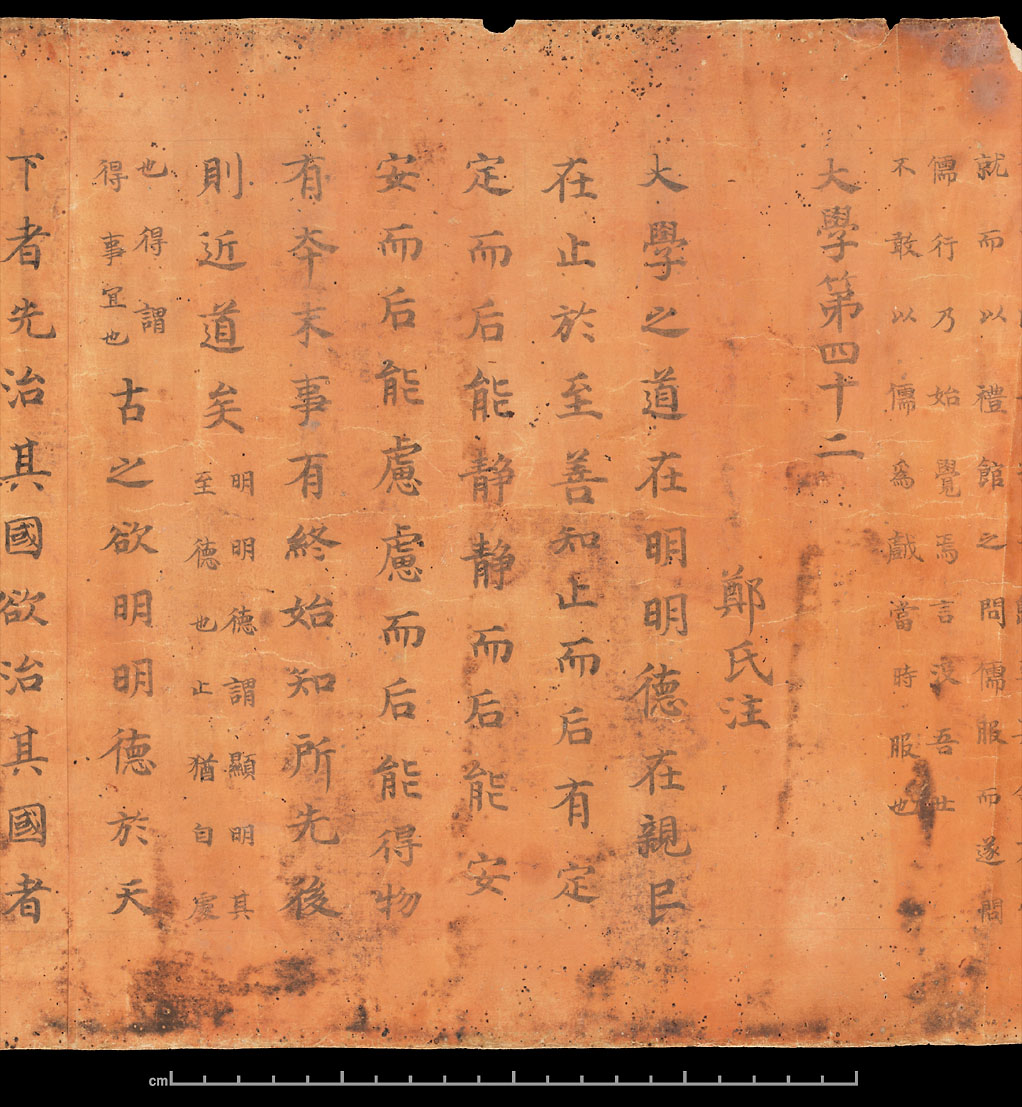 就而以禮館之問儒服而遂問
儒行乃始覺焉言没吾世
不敢以儒爲戲當時服也
大學第四十二
鄭氏注
大學之道在明明德在親民
在止於至善知止而后有定
定而后能靜靜而后能安
安而后能慮慮而后能得物
有夲末事有終始知所先後
則近道矣
明明德謂顯明其
至德也止猶自處
也得謂
得事宜也
古之欲明明德於天
下者先治其國欲治其國者